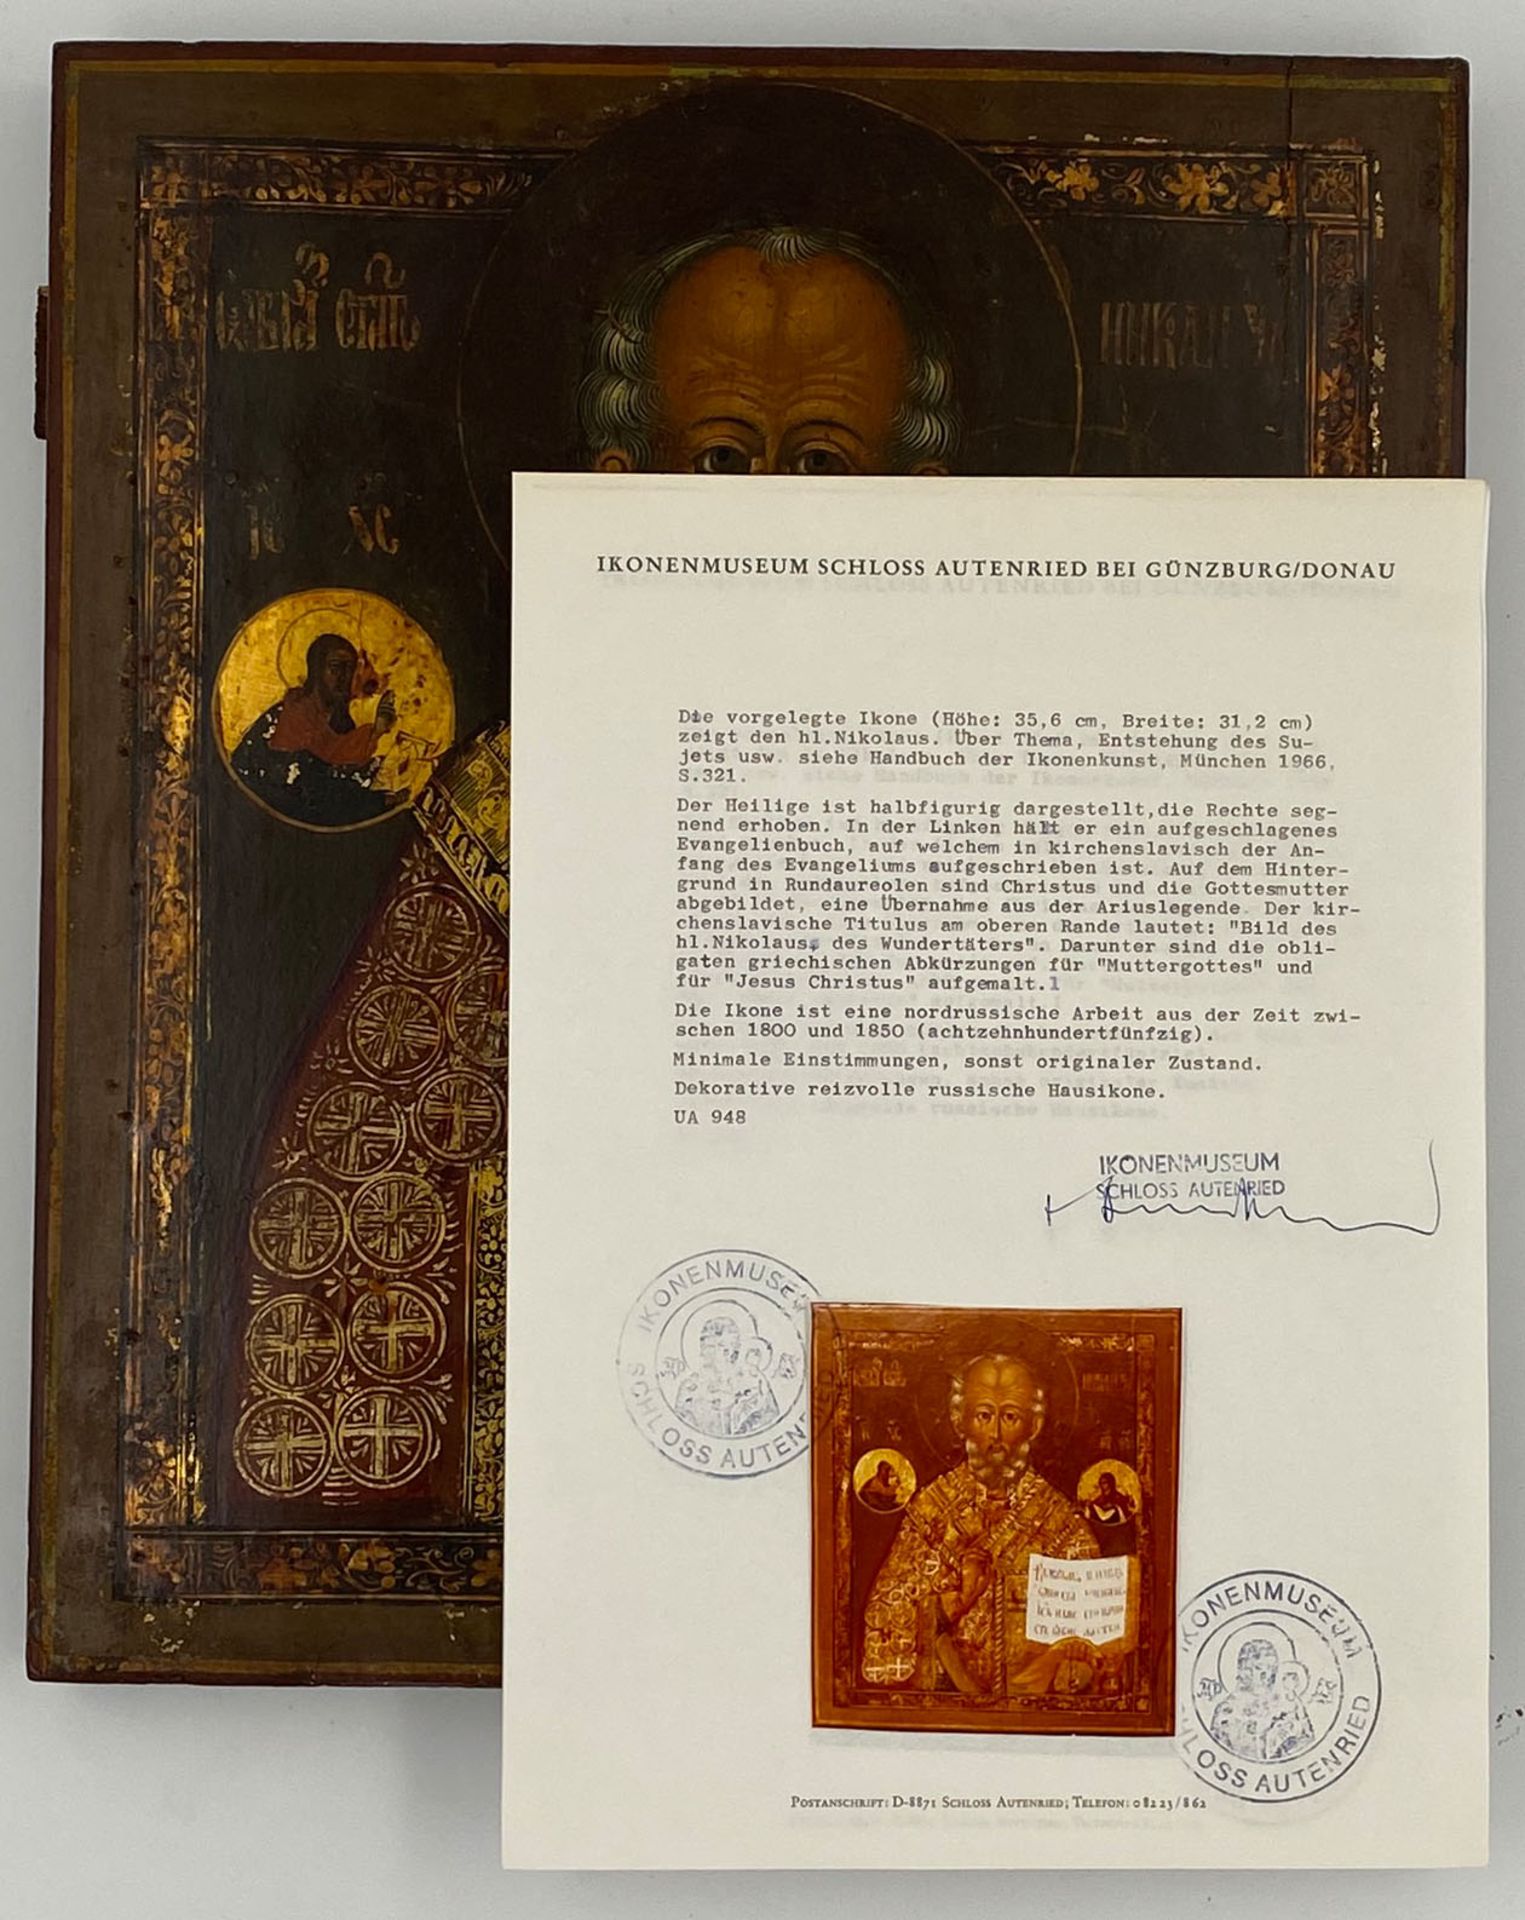 ІС ХС
IKONENMUSEUM SCHLOSS AUTENRIED BEI GÜNZBURG/DONAU
Die vorgelegte Ikone (Höhe: 35,6 cm, Breite: 31,2 cm)
zeigt den hl.Nikolaus. Über Thema, Entstehung des Su-
jets usw. siehe Handbuch der Ikonenkunst, München 1966,
S.321.
Der Heilige ist halbfigurig dargestellt,die Rechte seg-
nend erhoben. In der Linken hält er ein aufgeschlagenes
Evangelienbuch, auf welchem in kirchenslavisch der An-
fang des Evangeliums aufgeschrieben ist. Auf dem Hinter-
grund in Rundaureolen sind Christus und die Gottesmutter
abgebildet, eine Übernahme aus der Ariuslegende. Der kir-
chenslavische Titulus am oberen Rande lautet: "Bild des
hl.Nikolaus, des Wundertäters". Darunter sind die obli-
gaten griechischen Abkürzungen für "Muttergottes" und
für "Jesus Christus" aufgemalt.l
Die Ikone ist eine nordrussische Arbeit aus der Zeit zwi-
schen 1800 und 1850 (achtzehnhundertfünfzig).
Minimale Einstimmungen, sonst originaler Zustand.
Dekorative reizvolle russische Hausikone.
UA 948
IKONENMUSEUM
SCHLOSS AUTENRIED
IKONENMUSEU
SCHLOSS AUTEN
KONENMUSEUM
HLOSS AUTENRIED
POSTANSCHRIFT: D-8871 SCHLOSS AUTENRIED; TELEFON: 08223/862